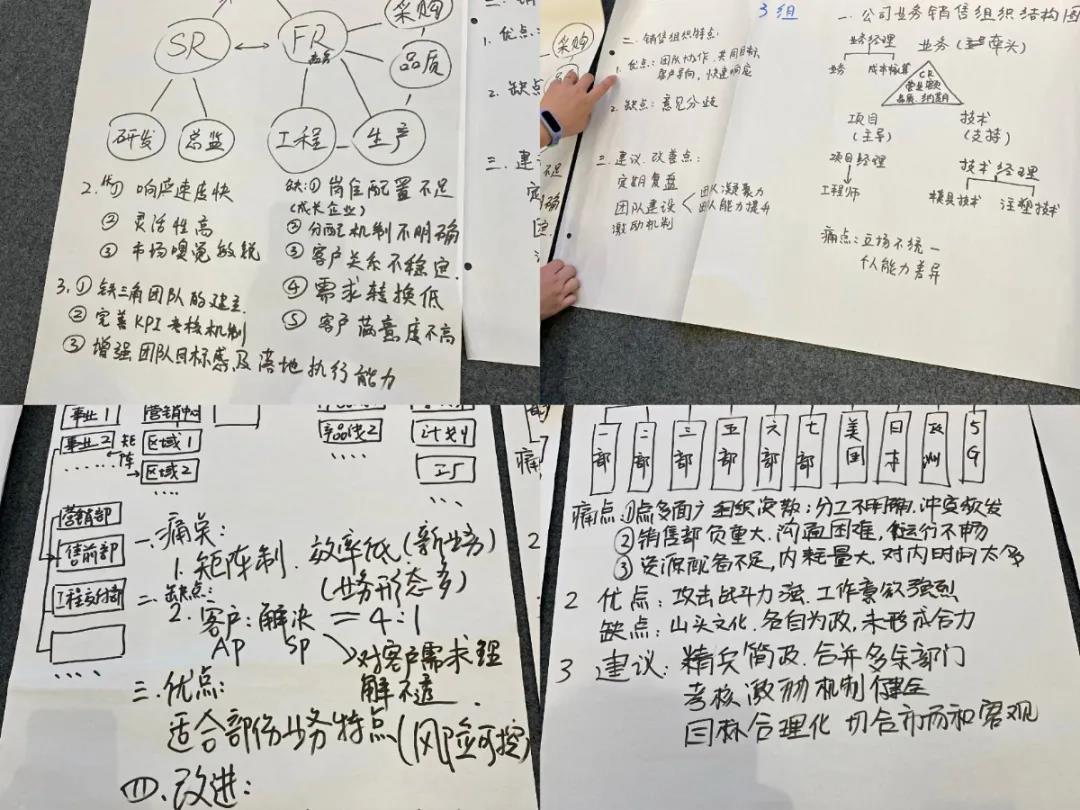 采购
SR
FR
品质
研发
总监
工程
生产
2. 优① 响应速度快
② 灵活性高
③ 市场嗅觉敏锐
缺:① 岗位配置不足
(成长企业)
② 分配机制不明确
③ 客户关系不稳定.
④ 需求转换低
⑤ 客户满意度不高
3. ① 铁三角团队的建立.
② 完善KPI考核机制
③ 增强团队目标感及落地执行能力
1. 优点:
2. 缺
三. 建
采购
3组
一. 公司业务销售组织结构图
二. 销售组织特点:
1. 优点: 团队协作. 共同目标.
客户导向, 快速响应
2. 缺点: 意见分歧
三. 建议. 改善点:
定期复盘
团队建设
激励机制
团队凝聚力
团队能力提升
业务经理
业务
成本核算
业务(牵头)
CR
项目
(主导)
技术
(支持)
项目经理
工程师
技术经理
模具技术
注塑技术
痛点: 立场不统一
个人能力差异
事业1
营销中心
事业2
矩阵
区域1
区域2
......
产品线2
计划
工厂
营销部
售前部
工程交付部
一. 痛点:
1. 矩阵制. 效率低(新业务)
(业务形态多)
二. 缺点:
2. 客户:解决 = 4:1
AP SP
对客户需求理
解不透.
三. 优点:
适合部份业务特点(风险可控)
四. 改进:
一部
二部
三部
五部
六部
七部
美国
日本
欧洲
5G
痛点: ①点多面广 组织次数; 分工不明确. 冲突频发
② 销售部负重大. 沟通困难, 运行不畅
③ 资源配备不足, 内耗量大. 对内时间太多
2 优点: 攻击战斗力强. 工作意欲强烈
缺点: 山头文化. 各自为政, 未形成合力
3 建议: 精兵简政. 合并多余部门
考核激励机制健全
目标合理化 切合市场和客观